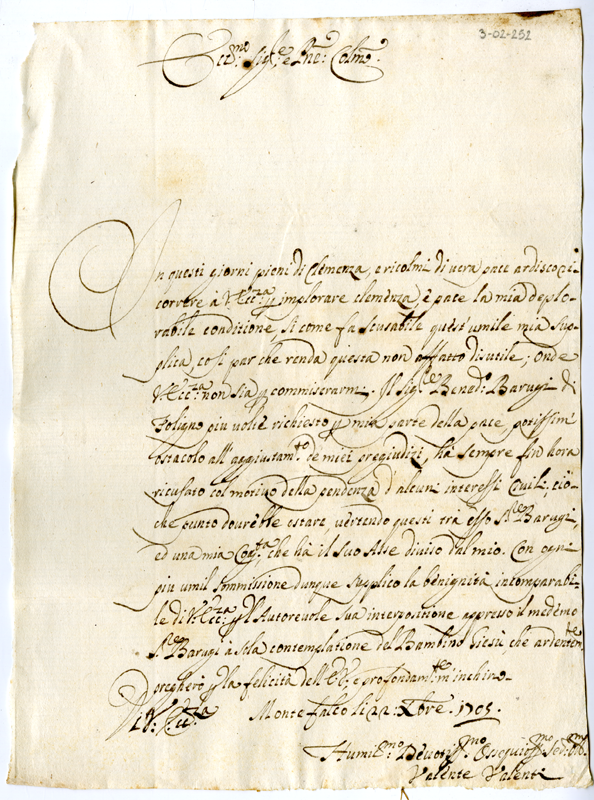 3-02-252
Ecc.mo Sig.re e Pne: Colmo.
In questi giorni pieni di Clemenza, e ricolmi di vera pace ardisco ri-
correre à V. Ecc.za p implorare clemenza, e pace la mia deplo-
rabile conditione, si come fa scusabile quest'umile mia sup-
plica, cosi par che renda questa non affatto disutile; Onde
V. Ecc.za non sia p commiserarmi. Il Sig.re Bened.o Barugi di
Foligno piu volte richiesto p mia parte della pace, potissim'
ostacolo all'aggiustam.to de miei pregiudizi, hà sempre fin hora
ricusato col motivo della pendenza d'alcuni interessi Civili, ciò
che punto dourebbe ostare, vertendo questi trà esso S.re Barugi,
ed una mia che hà il suo Asse diviso dal mio. Con ogni
piu umil sommissione dunque supplico la benignità incomparabi-
le di V. Ecc.za p l'Autorevole sua interpositione appresso il medemo
S.re Barugi à sola contemplatione del Bambino Giesù che ardentem.te
pregherò p la felicità dell'E.V., e profondam.te m'inchino.
Di V. Ecc.za Monte falco li 22. Xbre. 1705.
Humil.mo Devotiss.mo Ossequioss.mo Ser.
Valente Valenti